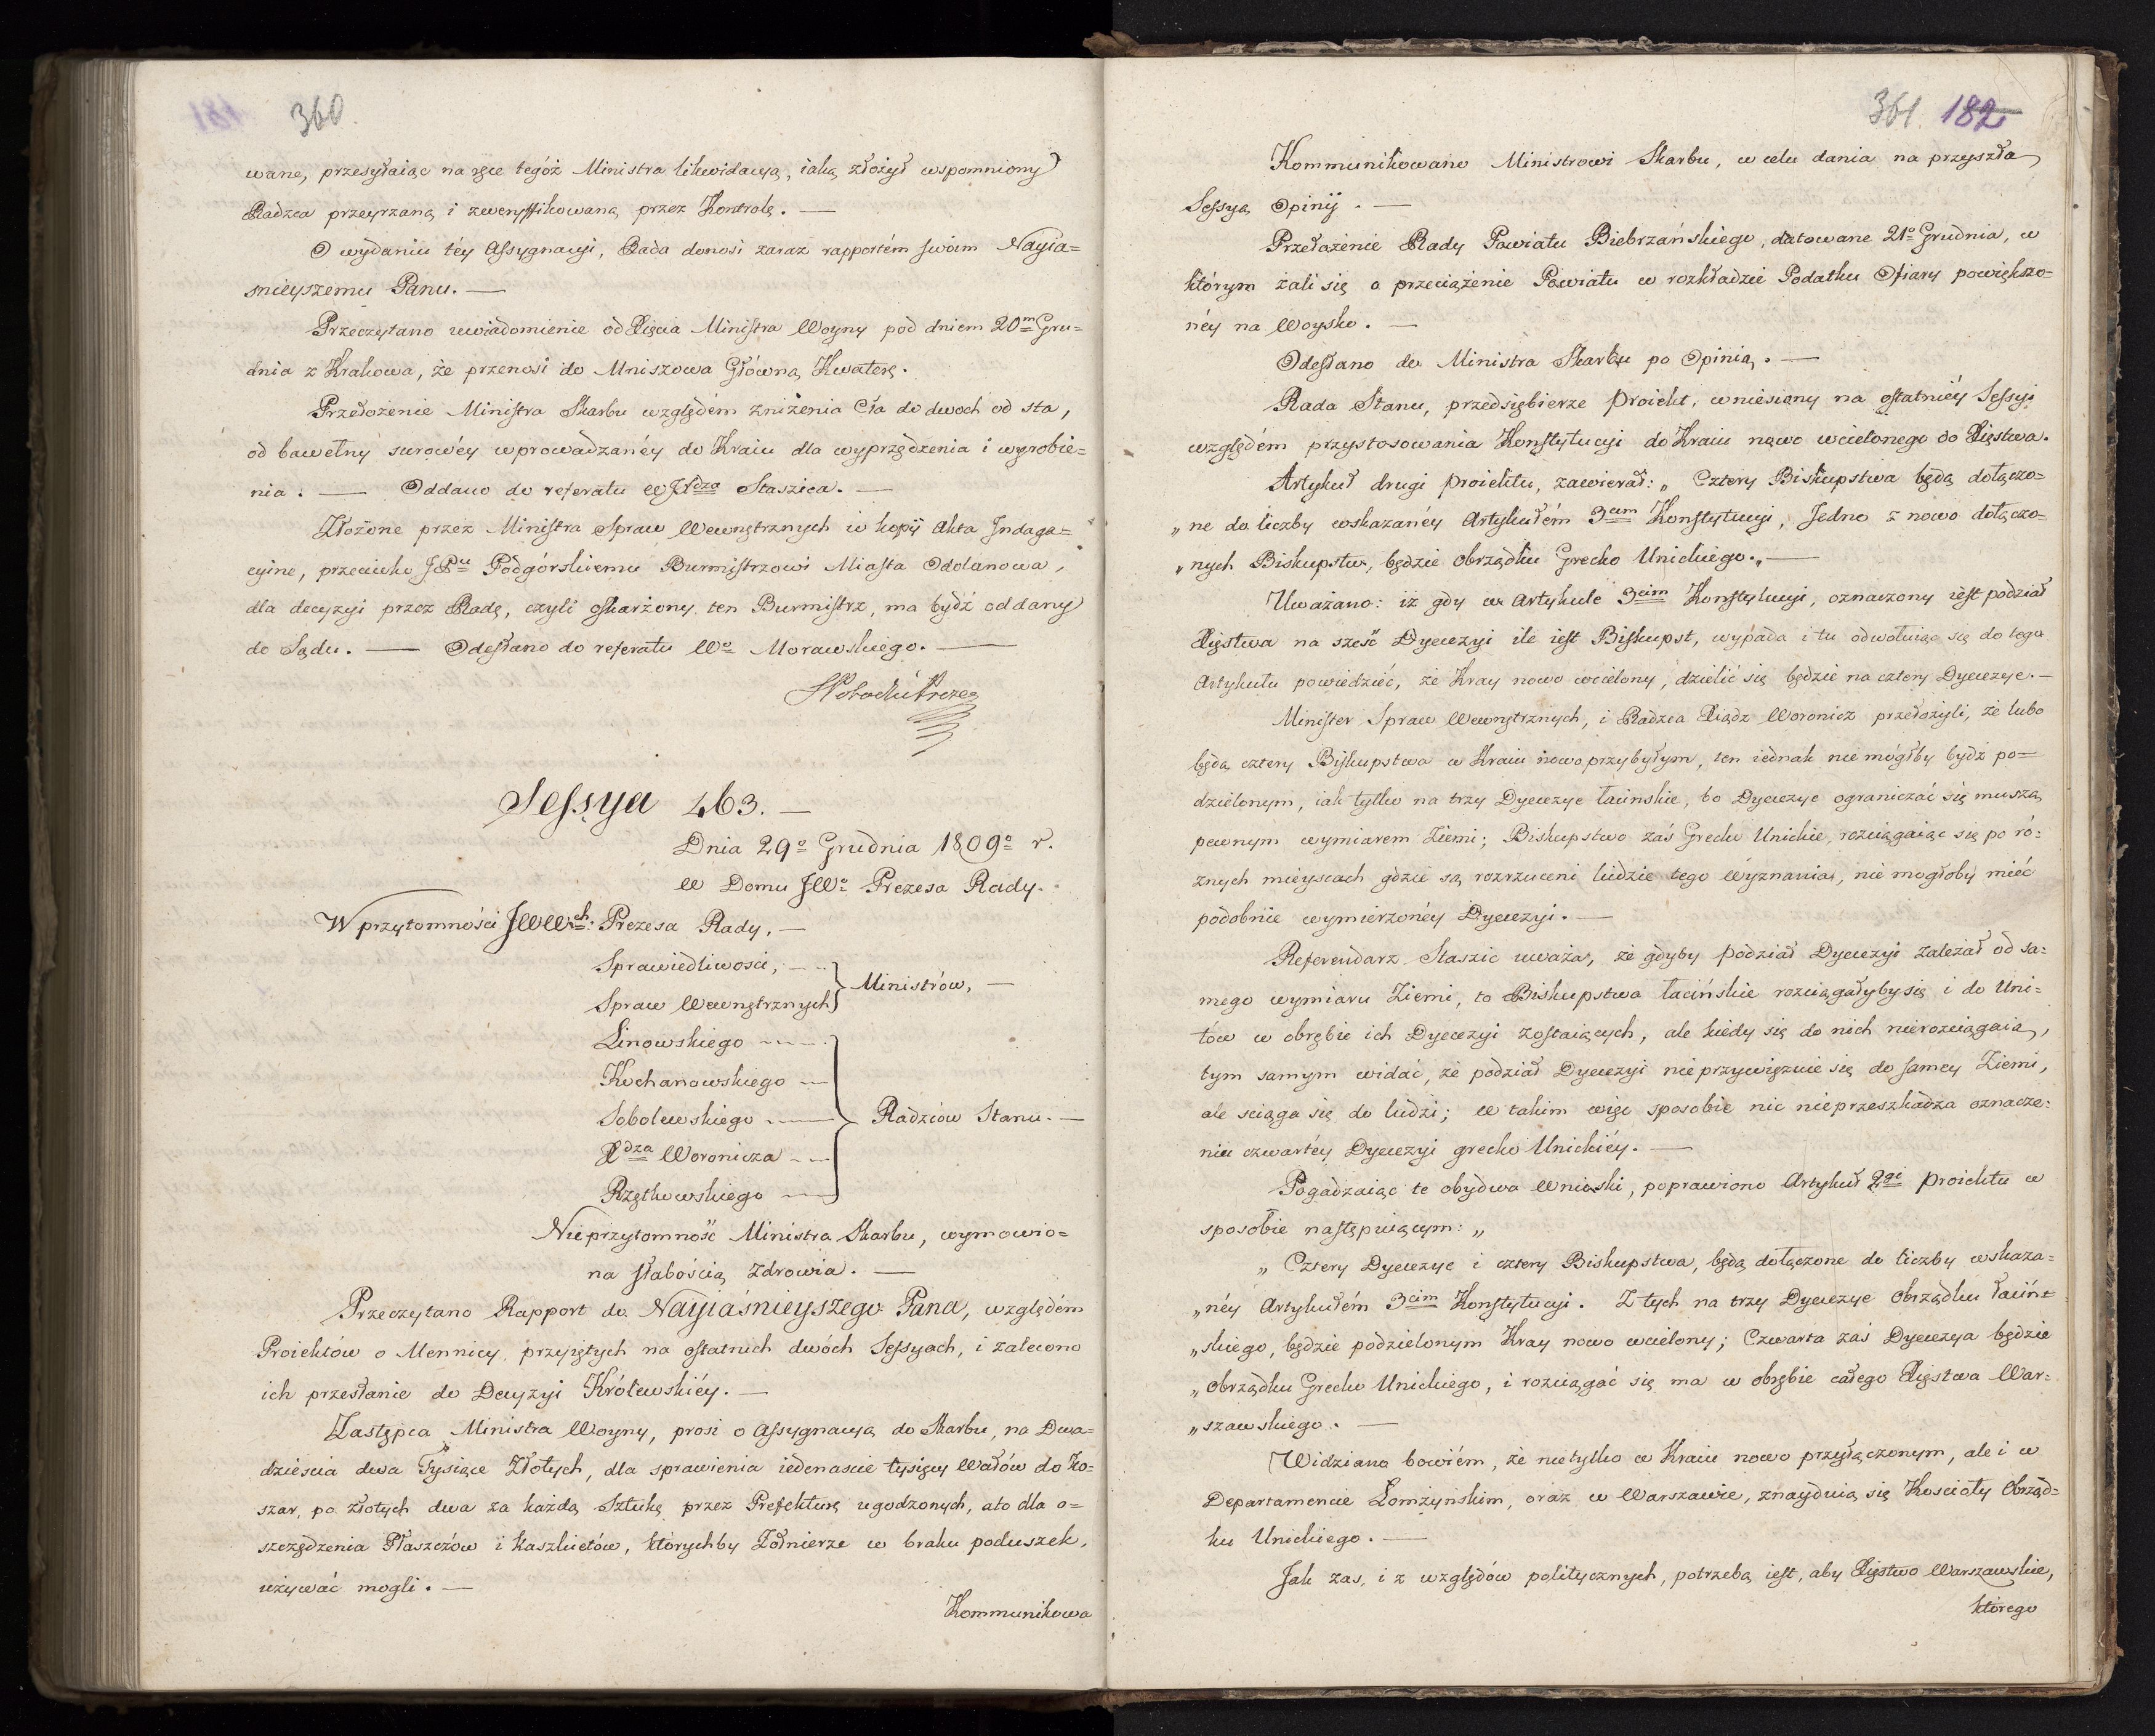 360.
wane, przesyłaiąc na ręce tegóż Ministra likwidacyą, iaką złożył wspomniony
Radzca przeyrzaną i zweryffikowaną przez Kontrolę. —
O wydaniu téy Assygnacyi, Rada donosi zaraz rapportém swoim Nayia=
snieyszemu Panu. —
Przeczytano uwiadomienie od Xięcia Ministra Woyny pod dniem 20m Gru=
dnia z Krakowa, że przenosi do Mniszowa Główną Kwaterę.
Przełożenie Ministra Skarbu względém zniżenia Cła do dwoch od sta,
od bawełny surowéy wprowadzanéy do Kraiu dla wyprzędzenia i wyrobie=
nia. — Oddano do referatu Xdza Staszica. —
Złożone przez Ministra Spraw Wewnętrznych w kopij Akta Indaga=
cyine, przeciwko JPu Podgórskiemu Burmistrzowi Miasta Odolanowa,
dla decyzyi przez Radę, czyli oskarżony ten Burmistrz, ma bydź oddany
do Sądu. — Odesłano do referatu Wo Morawskiego. —
Sessya 463. —
Dnia 29o Grudnia 1809o r.
W Domu JWo Prezesa Rady.
W przytomności JWWch: Prezesa Rady, —
Sprawiedliwosci, —
Spraw Wewnętrznych } Ministrów, —
Linowskiego —
Kochanowskiego —
Sobolewskiego — } Radzców Stanu. —
Xdza Woronicza —
Rzętkowskiego —
Nieprzytomność Ministra Skarbu, wymowio=
na słabością zdrowia. —
Przeczytano Rapport do Nayiaśnieyszego Pana, względém
Proiektów o Mennicy przyiętych na ostatnich dwóch Sessyach, i zalecono
ich przesłanie do Decyzyi Królewskiéy. —
Zastępca Ministra Woyny, prosi o Assygnacyą do Skarbu, na Dwa=
dzieścia dwa Tysiące Złotych, dla sprawienia iedenascie tysięcy Wałów do Ko=
szar, po złotych dwa za każdą Sztukę przez Prefekturę ugodzonych, a to dla o=
szczędzenia Płaszczów i Kaszkietów, którychby Żołnierze w braku poduszek,
używać mogli. —
Kommunikowa
361. 182
Kommunikowano Ministrowi Skarbu, w celu dania na przyszłą
Sessyą Opinij. —
Przełożenie Rady Powiatu Biebrzańskiego, datowane 21o Grudnia, w
którym żali się o przeciążenie Powiatu w rozkładzie Podatku Ofiary powiększo=
néy na Woysko. —
Odesłano do Ministra Skarbu po Opinią. —
Rada Stanu, przedsiębierze Proiekt, wniesiony na ostatniéy Sessyi
względém przystosowania Konstytucyi do Kraiu nowo wcielonego do Xięstwa.
Artykuł drugi Proiektu, zawierał: „ Cztery Biskupstwa będą dołączo=
„ne do liczby wskazanéy Artykułém 3cim Konstytucyi, Jedno z nowo dołączo=
„nych Biskupstw, będzie Obrządku Grecko Unickiego.„ —
Uważano: iż gdy w Artykule 3cim Konstytucyi, oznaczony iest podział
Xięstwa na sześć Dyecezyi ile iest Biskupst, wypada i tu odwołuiąc się do tego
Artykułu powiedzieć, że Kray nowo wcielony, dzielić się będzie na cztery Dyecezye. —
Minister Spraw Wewnętrznych, i Radzca Xiądz Woronicz przełożyli, że lubo
będą cztery Biskupstwa w Kraiu nowo przybyłym, ten iednak nie mógłby bydź po=
dzielonym, iak tylko na trzy Dyecezye łacinskie, bo Dyecezye ograniczać się muszą
pewnym wymiarem Ziemi; Biskupstwo zaś Grecko Unickie, rozciągaiąc się po ró=
żnych mieyscach gdzie są rozrzuceni ludzie tego Wyznania, nie mogłoby mieć
podobnie wymierzonéy Dyecezyi. —
Referendarz Staszic uważa, że gdyby podział Dyecezyi zależał od sa=
mego wymiaru Ziemi, to Biskupstwa łacińskie rozciągałyby się i do Uni=
tów w obrębie ich Dyecezyi zostaiących, ale kiedy się do nich nierozciągaią,
tym samym widać, że podział Dyecezyi nie przywięzuie się do samey Ziemi,
ale sciąga się do ludzi; w takim więc sposobie nic nieprzeszkadza oznacze=
niu czwartéy Dyecezyi grecko Unickiéy. —
Pogadzaiąc te obydwa Wnioski, poprawiono Artykuł 2gi Proiektu w
sposobie następuiącym: „
„ Cztery Dyecezye i cztery Biskupstwa, będą dołączone do liczby wskaza=
„néy Artykułém 3cim Konstytucyi. Z tych na trzy Dyecezye Obrządku łaciń=
„skiego, będzie podzielonym Kray nowo wcielony; Czwarta zaś Dyecezya będzie
„Obrządku Grecko Unickiego, i rozciągać się ma w obrębie całego Xięstwa War=
„szawskiego. —
Widziano bowiém, że nietylko w Kraiu nowo przyłączonym, ale i w
Departamencie Łomżyńskim, oraz w Warszawie, znayduią się Kościoły Obrząd=
ku Unickiego. —
Jak zaś, i z względów politycznych, potrzebą iest, aby Xięstwo Warszawskie,
którego